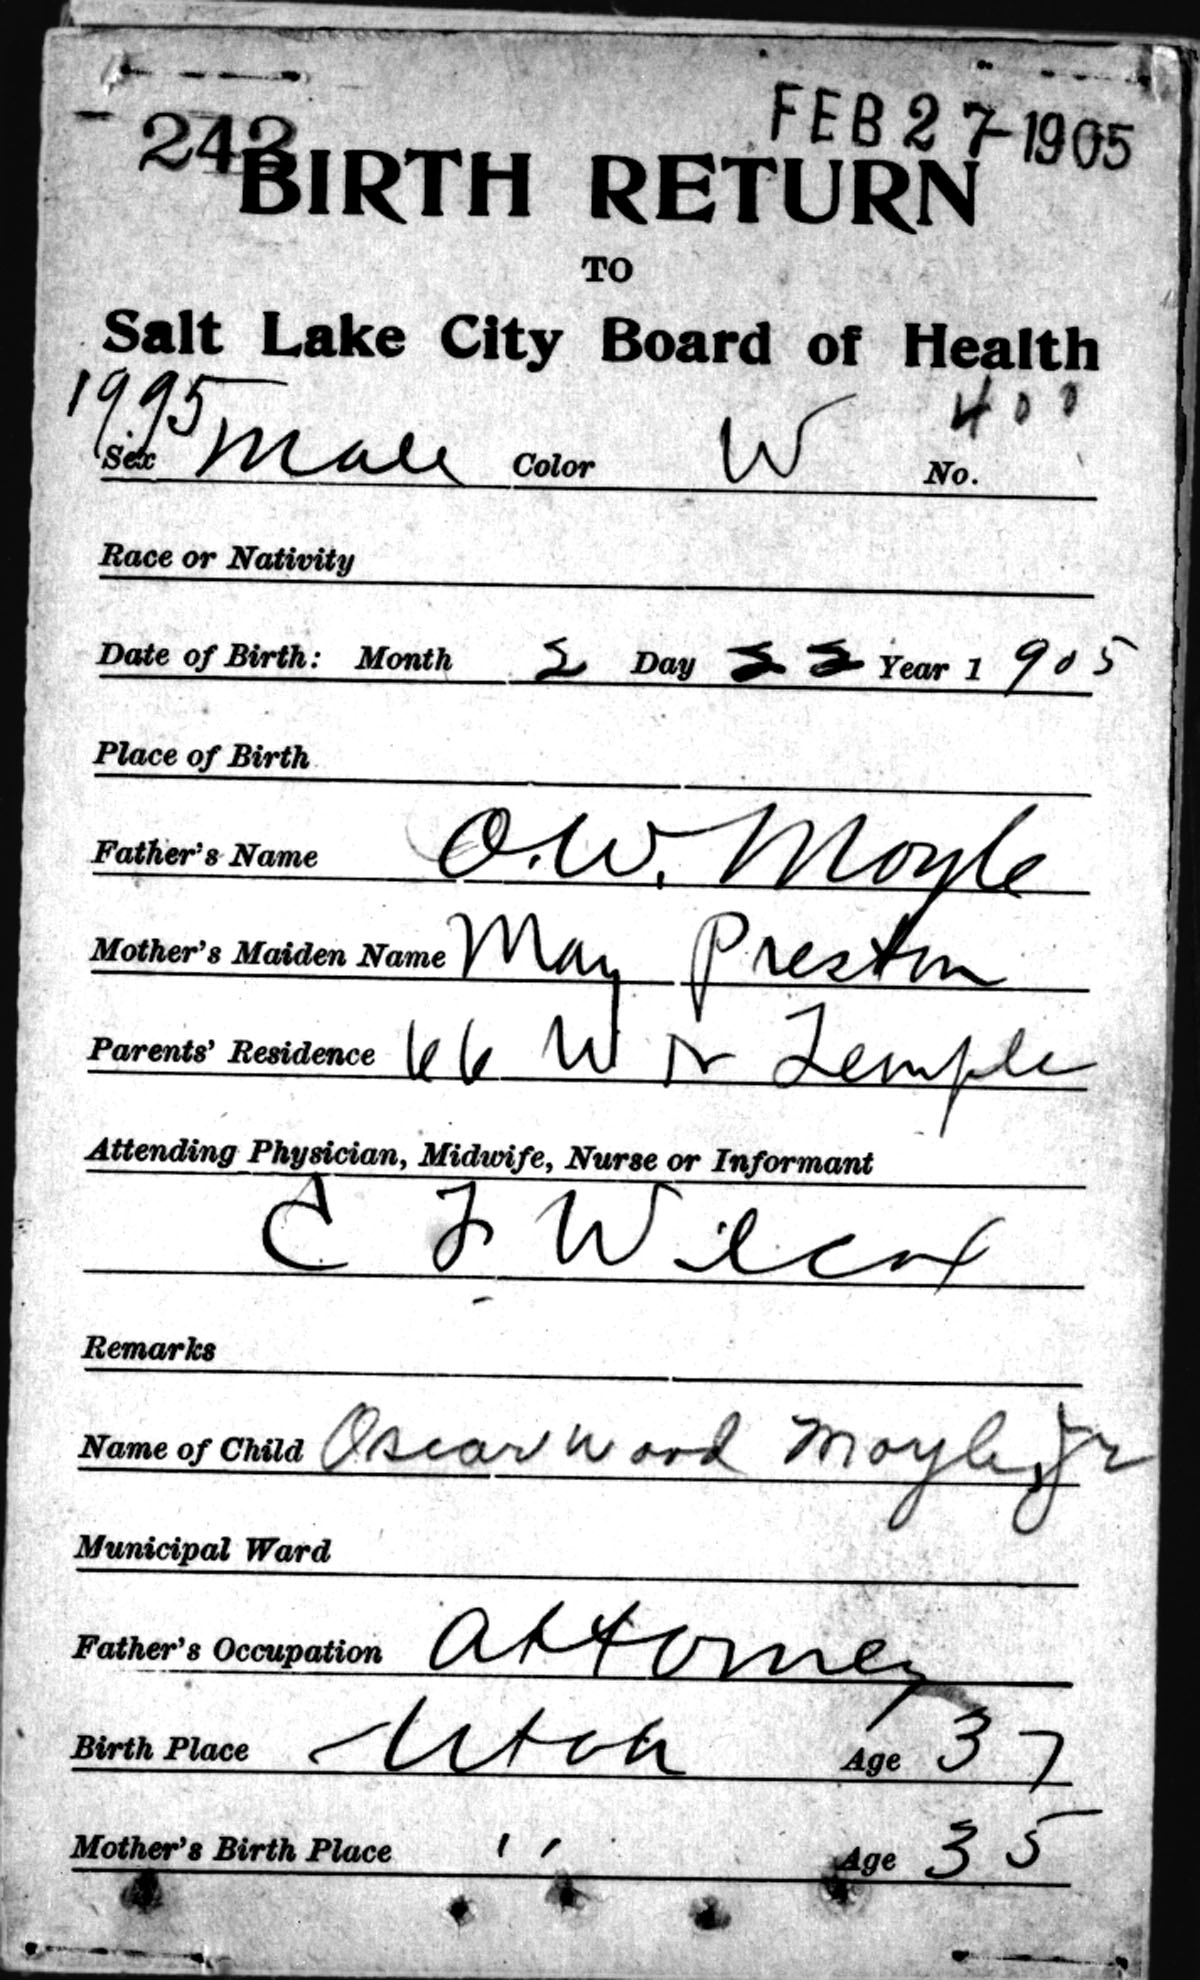 243 FEB 27 1905
BIRTH RETURN
TO
Salt Lake City Board of Health
1995 400
Sex Male Color W No.
Race or Nativity
Date of Birth: Month 2 Day 22 Year 1 905
Place of Birth
Father's Name O.W. Moyle
Mother's Maiden Name May Preston
Parents' Residence 66 W N Temple
Attending Physician, Midwife, Nurse or Informant
C F Wilcox
Remarks
Name of Child Oscar Wood Moyle, Jr
Municipal Ward
Father's Occupation Attorney
Birth Place Utah Age 37
Mother's Birth Place " Age 35